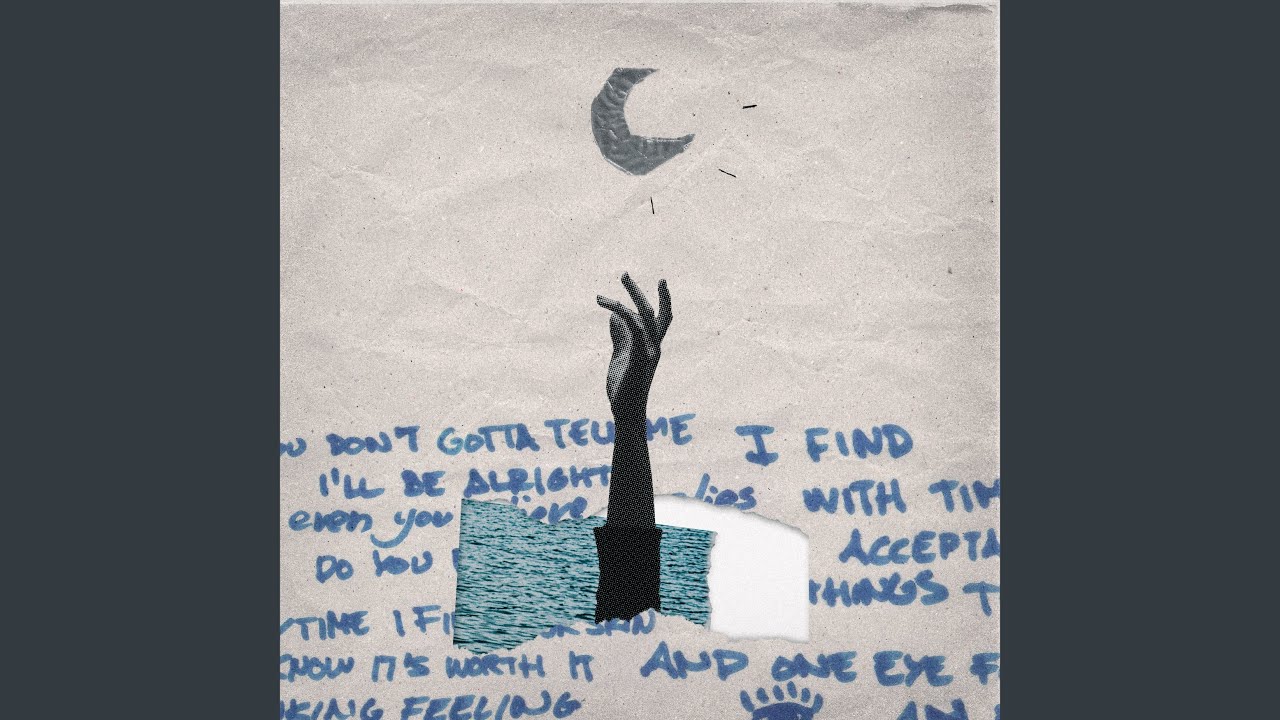 OU DON'T GOTTA TELL ME
I'LL BE ALRIGHT
even you lies
DO YOU
YTIME I FI SKIN
KNOW IT'S WORTH IT
KING FEELING
I FIND
WITH TIM
ACCEPTA
THINGS T
AND ONE EYE F
AN